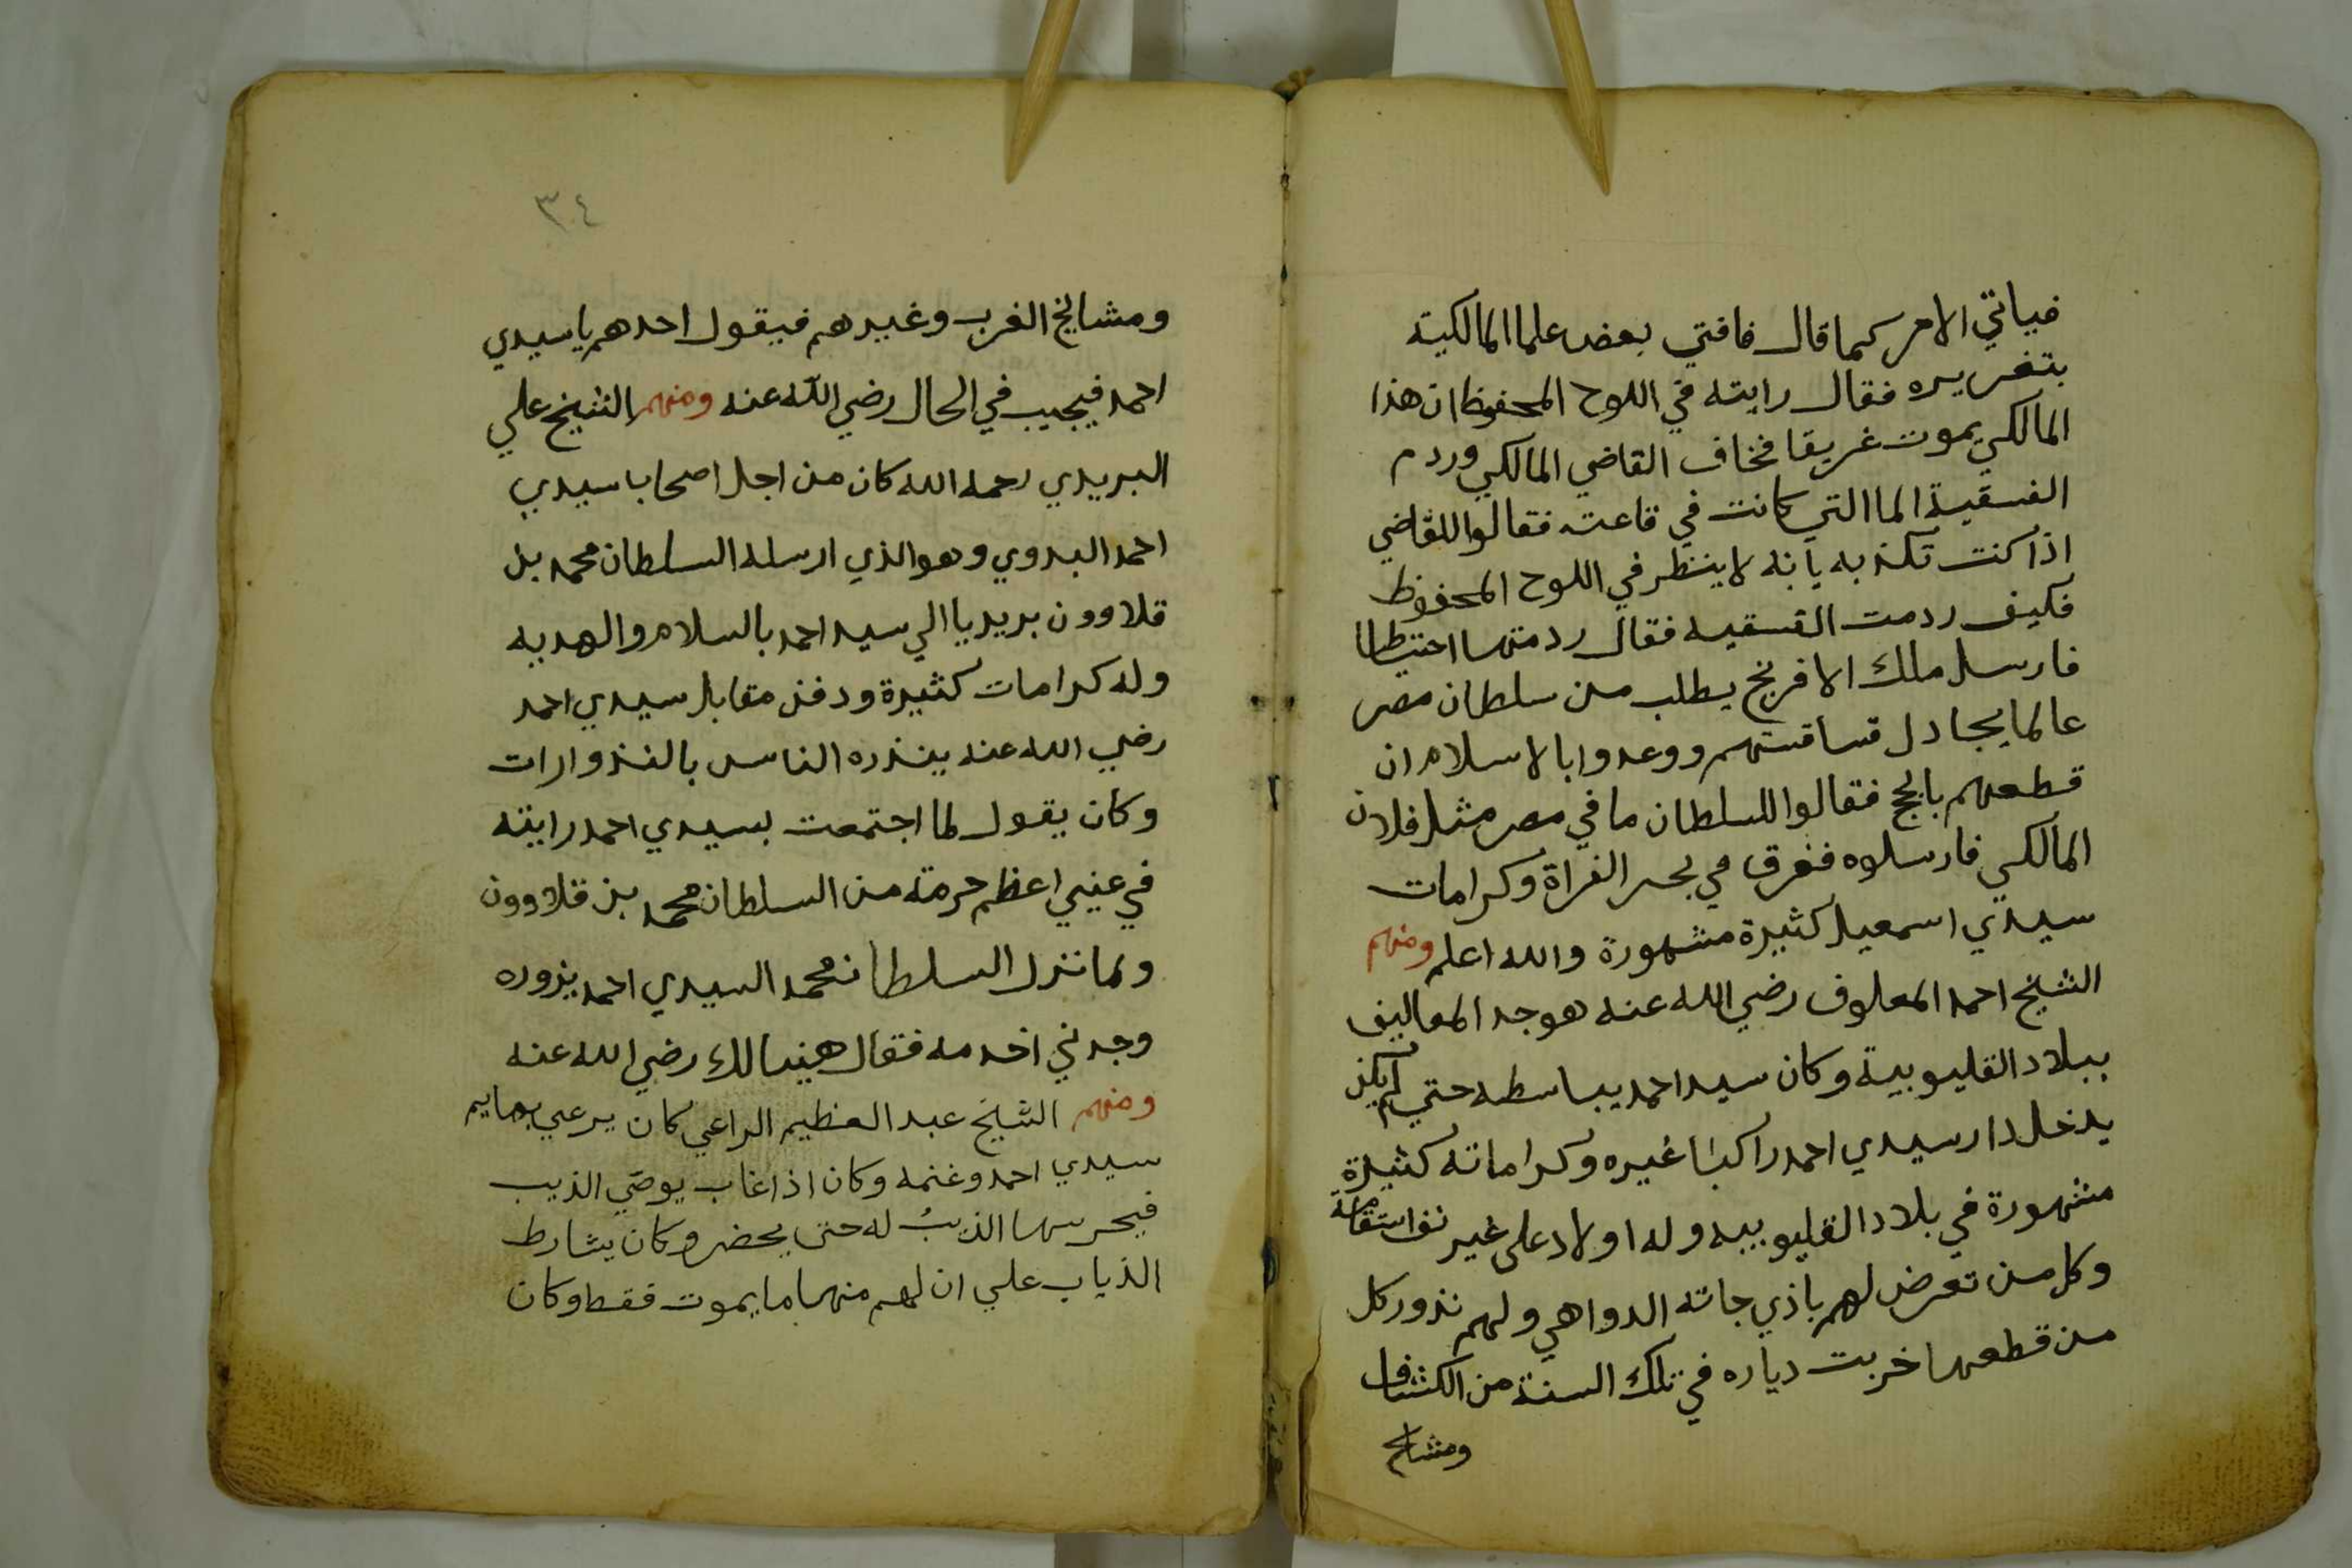 فياتي الامر كما قال فافتي بعض علما المالكية
بتغريره فقال رايته في اللوح المحفوظ ان هذا
المالكي يموت غريقا فخاف القاضي المالكي وردم
الفسقية الما التي كانت في قاعته فقالوا للقاضي
اذا كنت تكذبه بأنه لا ينظر في اللوح المحفوظ
فكيف ردمت الفسقيه فقال ردمتها احتياطا
فارسل ملك الافرنج يطلب من سلطان مصر
عالما يجادل قساقستهم ووعدوا بالاسلام ان
قطعهم بالحج فقالوا للسلطان ما في مصر مثل فلان
المالكي فارسلوه فغرق في بحر الفراة وكرامات
سيدي اسمعيل كثيرة مشهورة والله اعلم ومنهم
الشيخ احمد المعلوف رضي الله عنه هو جد المعاليف
ببلاد القليوبية وكان سيد احمد يباسطه حتي لم يكن
يدخل دار سيدي احمد راكبا غيره وكراماته كثيرة
مشهورة في بلاد القليوبيه وله اولاد علي غير استقامة
وكل من تعرض لهم باذي جاته الدواهي ولهم نذور كل
من قطعها خربت دياره في تلك السنة من الكشاف
ومشايخ
٣٤
ومشايخ الغرب وغيرهم فيقول احدهم يا سيدي
احمد فيجيب في الحال رضي الله عنه ومنهم الشيخ علي
البريدي رحمه الله كان من اجل اصحاب سيدي
احمد البدوي وهو الذي ارسله السلطان محمد بن
قلاوون بريديا الي سيد احمد بالسلام والهديه
وله كرامات كثيرة ودفن مقابل سيدي احمد
رضي الله عنه ينذره الناس بالنذوارات
وكان يقول لما اجتمعت بسيدي احمد رايته
في عيني اعظم حرمة من السلطان محمد بن قلاوون
ولما نزل السلطان محمد السيدي احمد يزوره
وجدني اخدمه فقال هنيا لك رضي الله عنه
ومنهم الشيخ عبد العظيم الراعي كان يرعي بهايم
سيدي احمد وغنمه وكان اذا غاب يوصي الذيب
فيحرسها الذيب له حتي يحضر وكان يشارط
الذياب علي ان لهم منها ما يموت فقط وكان